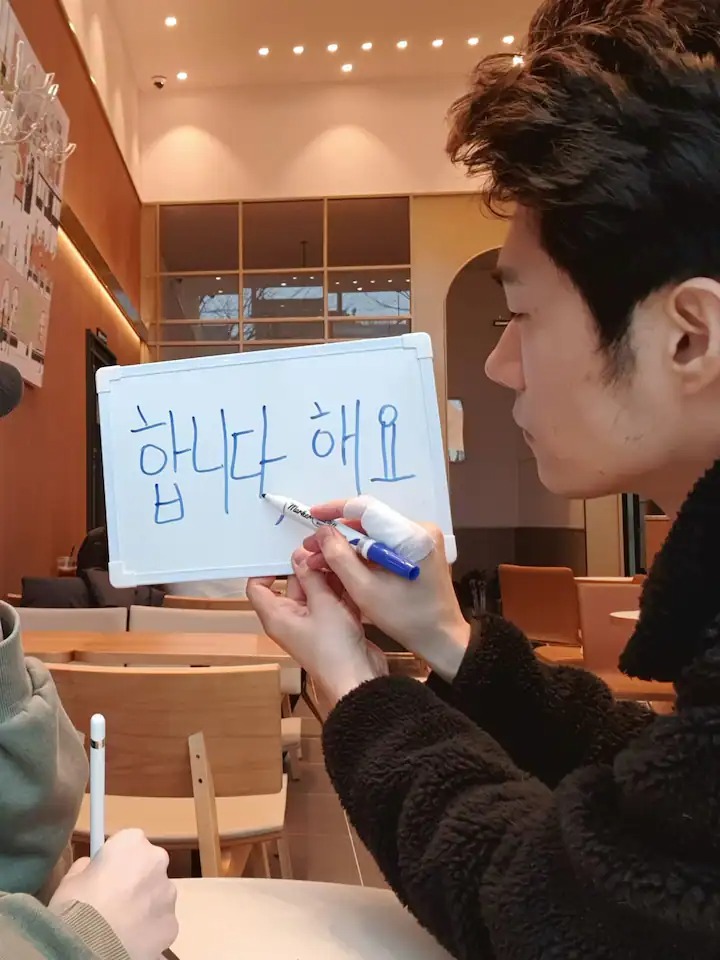 합니다, 해요
Marker